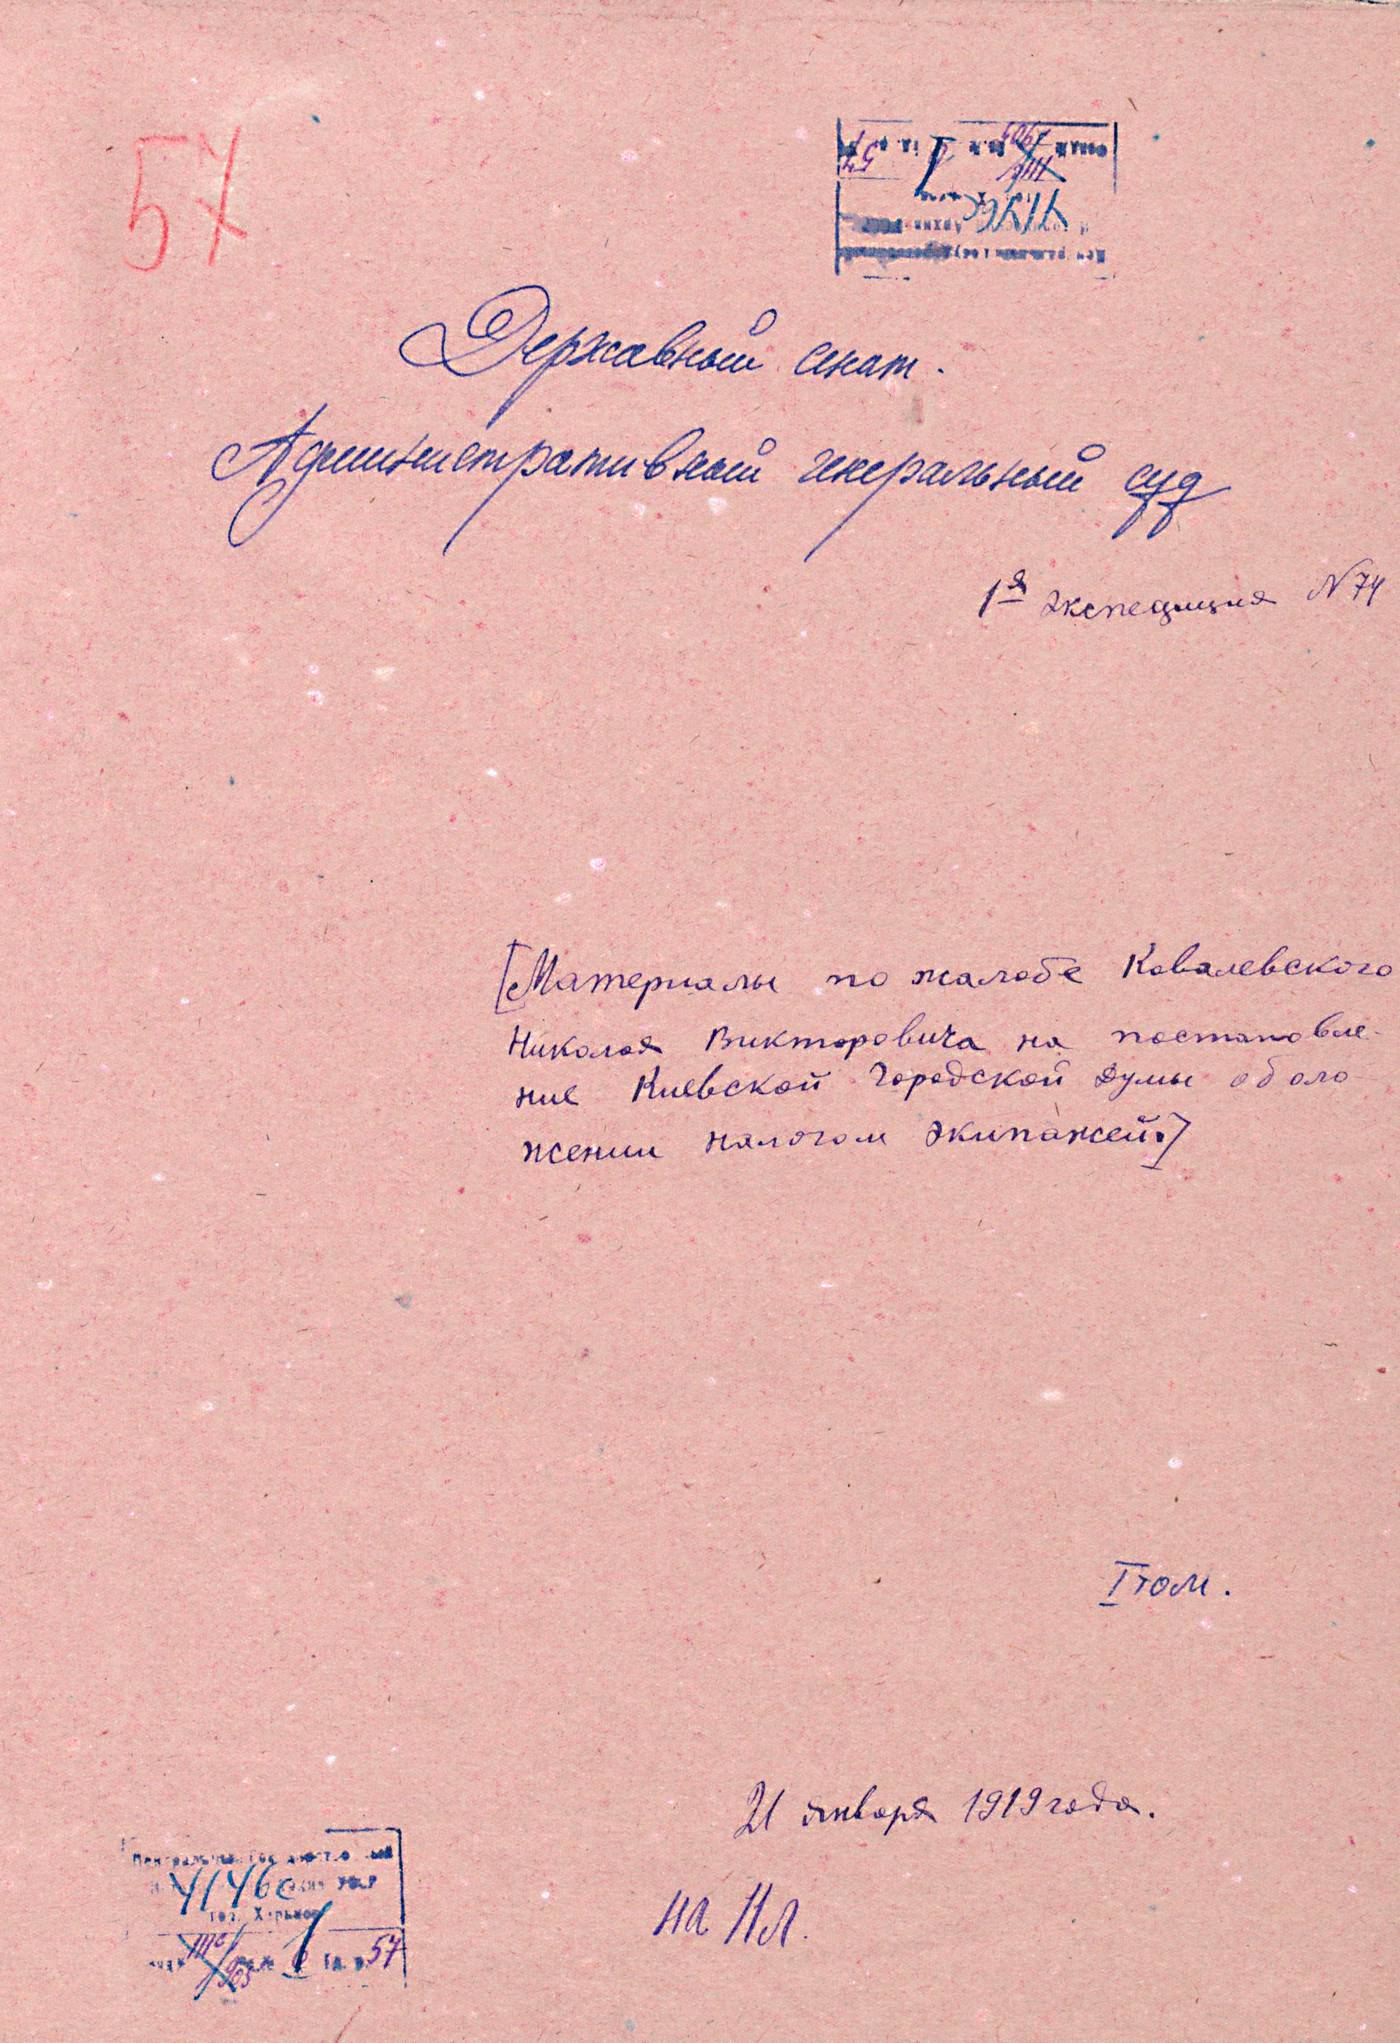 57
Державный сенат.
Административный генеральный суд
1я экспедиция N 74
[Материалы по жалобе Ковалевского
Николая Викторовича на постановле-
ние Киевской Городской Думы об оло
жении налогом экипажей.]
I том.
21 января 1919 года.
на 11 л.
4146с
гор. Харьков
1
57